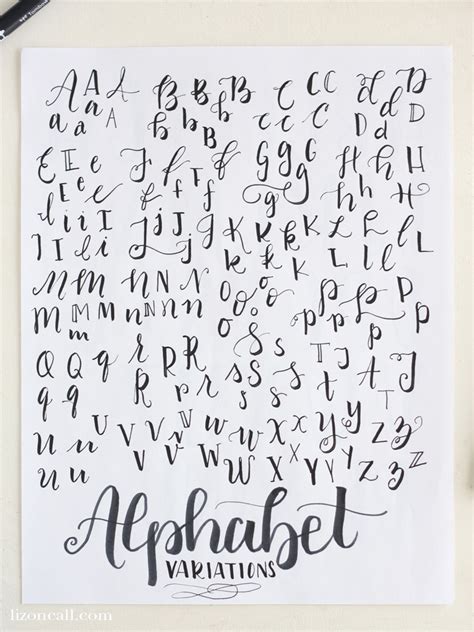 A A A B B B C C C d D
a a A b b B c C c D d D
E E e F f F G g G H h H
E e e f f g h h H
I i i I J j J j K k K L l L
I I l i J j k k K L l l
M m M N n N O o O P p P P
M M m n n n o o p p p
Q Q q R R R S s S T T J
q q r r s S s t T
U u U V V V W w X X Y y Z Z
u u v V W W X Y Y Z Z
Alphabet
VARIATIONS
lizoncall.com